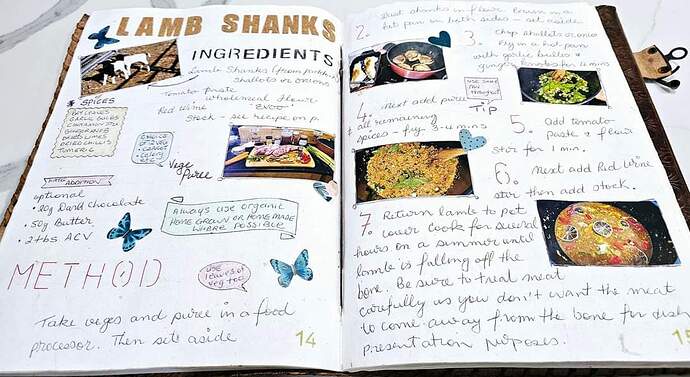 LAMB SHANKS
INGREDIENTS
Lamb Shanks (from
Shallots or onions
Tomato Paste
wholemeal flour
Red Wine
Stock - see recipe on p
* SPICES
BAY LEAVES
GARLIC BULBS
CINNAMON STIX
GINGER KNOBS
DRIED LIMES
DRIED CHILLIS
TUMERIC
CHOICE
OF 2 VEG
• CARROT
• Celery
ETC
Vege
Puree
ADDITION
optional
• 20g Dark Chocolate
• 50g Butter
• 2 tbs ACV
Always use organic
HOME GROWN OR HOME MADE
WHERE POSSIBLE
METHOD
USE
leaves of
veg too
Take veges and puree in a food
processor. Then set aside
14
2. Dust shanks in flour brown in a
hot pan on both sides - set aside
3. Chop shallots or onio
Fry in a hot pan
with garlic bulbs &
ginger knobs for 4 mins
USE SAME
PAN THROUGHOUT
TIP
4. next add puree
& all remaining
spices - fry 3-4 mins
5. Add tomato
paste & flour
stir for 1 min.
6. next add Red Wine
stir then add stock.
7. Return lamb to pot
cover cook for several
hours on a summer until
lamb is falling off the
bone. Be sure to treat meat
carefully as you don't want the meat
to come away from the bone for dish
presentation purposes.
15